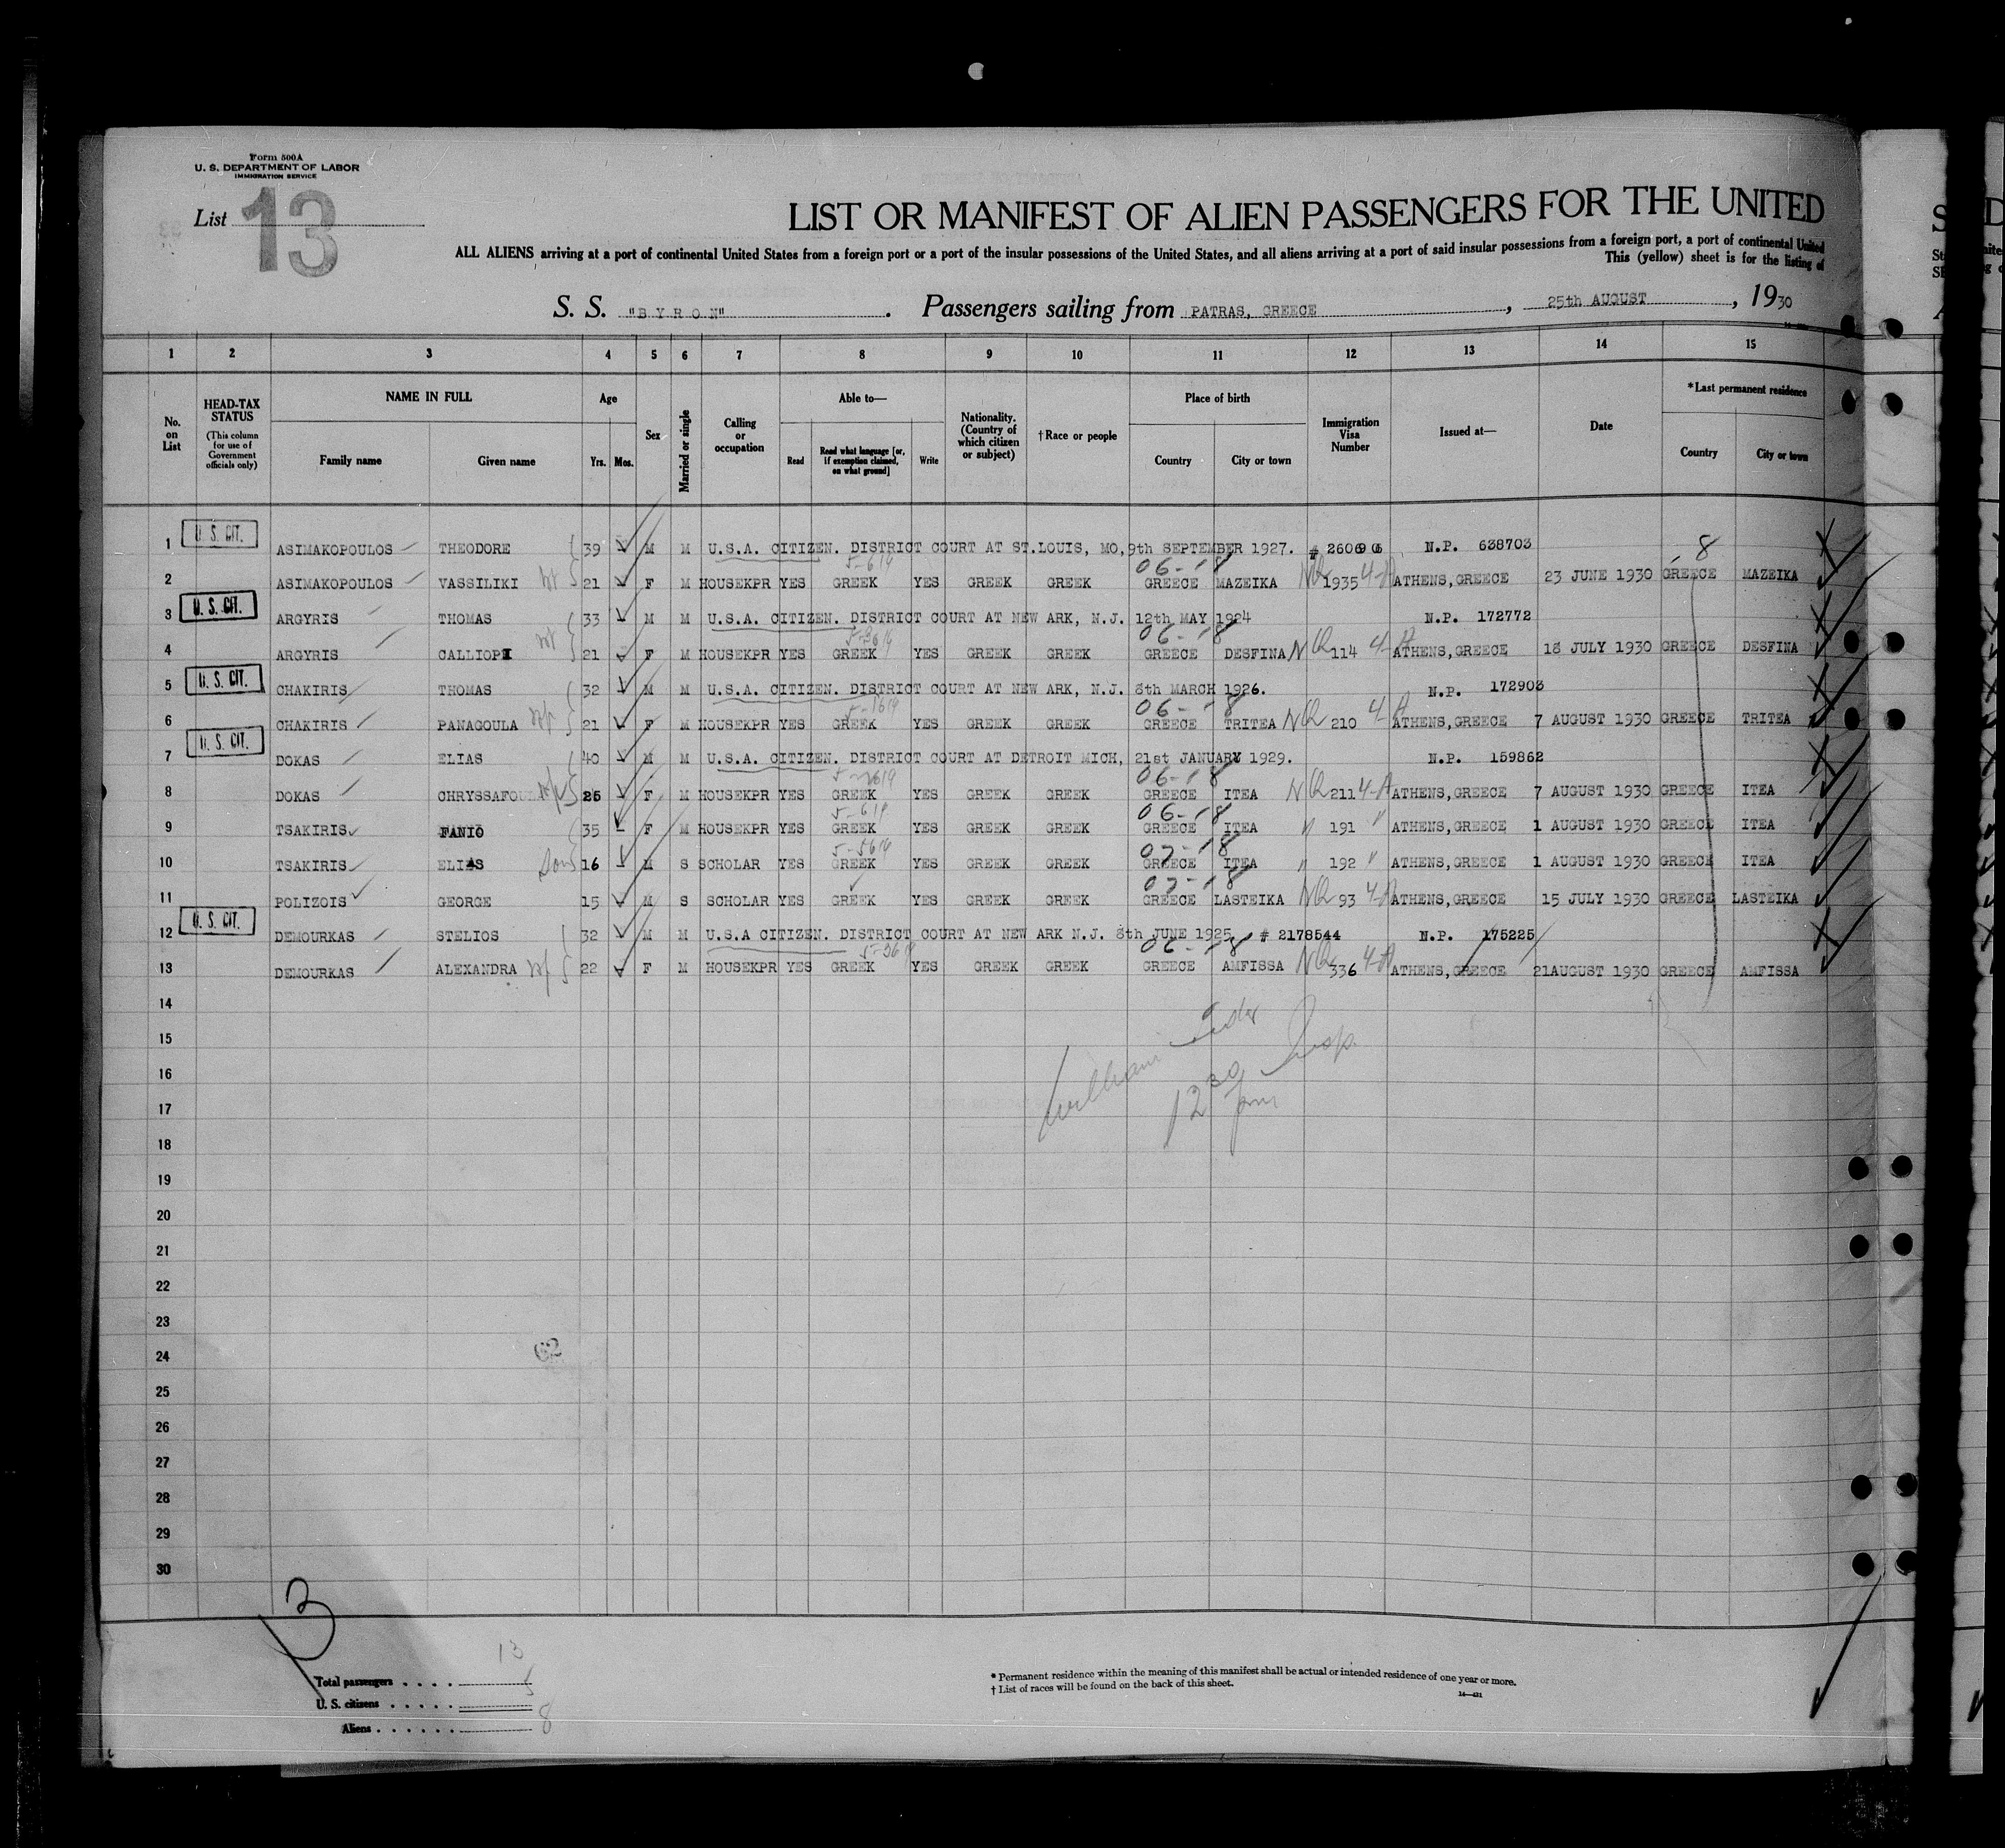 Form 500A
U. S. DEPARTMENT OF LABOR
IMMIGRATION SERVICE
List 13
LIST OR MANIFEST OF ALIEN PASSENGERS FOR THE UNITED
ALL ALIENS arriving at a port of continental United States from a foreign port or a port of the insular possessions of the United States, and all aliens arriving at a port of said insular possessions from a foreign port, a port of continental United
This (yellow) sheet is for the listing of
S. S. "BYRON". Passengers sailing from PATRAS, GREECE, 25th AUGUST, 1930
1 2 3 4 5 6 7 8 9 10 11 12 13 14 15
No. on List
HEAD-TAX STATUS (This column for use of Government officials only)
NAME IN FULL Family name Given name
Age Yrs. Mos.
Sex
Married or single
Calling or occupation
Able to— Read Read what language [or, if exemption claimed, on what ground] Write
Nationality. (Country of which citizen or subject)
†Race or people
Place of birth Country City or town
Immigration Visa Number
Issued at—
Date
*Last permanent residence Country City or town
1 U. S. CIT. ASIMAKOPOULOS THEODORE 39 M M U.S.A. CITIZEN. DISTRICT COURT AT ST.LOUIS, MO, 9th SEPTEMBER 1927. # N.P. 638703 8
5-614 06-18
2 ASIMAKOPOULOS VASSILIKI 21 F M HOUSEKPR YES GREEK YES GREEK GREEK GREECE MAZEIKA NQ 1935 4-A ATHENS,GREECE 23 JUNE 1930 GREECE MAZEIKA
3 U. S. CIT. ARGYRIS THOMAS 33 M M U.S.A. CITIZEN. DISTRICT COURT AT NEW ARK, N.J. 12th MAY 1924 N.P. 172772
06-18
4 ARGYRIS CALLIOPI 21 F M HOUSEKPR YES GREEK YES GREEK GREEK GREECE DESFINA NQ 114 4-A ATHENS,GREECE 18 JULY 1930 GREECE DESFINA
5 U. S. CIT. CHAKIRIS THOMAS 32 M M U.S.A. CITIZEN. DISTRICT COURT AT NEW ARK, N.J. 8th MARCH 1926. N.P. 172903
06-18
6 CHAKIRIS PANAGOULA 21 F M HOUSEKPR YES GREEK YES GREEK GREEK GREECE TRITEA NQ 210 4-A ATHENS,GREECE 7 AUGUST 1930 GREECE TRITEA
7 U. S. CIT. DOKAS ELIAS 40 M M U.S.A. CITIZEN. DISTRICT COURT AT DETROIT MICH, 21st JANUARY 1929. N.P. 159862
06-18
8 DOKAS 26 F M HOUSEKPR YES GREEK YES GREEK GREEK GREECE ITEA NQ 211 4-A ATHENS,GREECE 7 AUGUST 1930 GREECE ITEA
06-18
9 TSAKIRIS FANIO 35 F M HOUSEKPR YES GREEK YES GREEK GREEK GREECE ITEA " 191 " ATHENS,GREECE 1 AUGUST 1930 GREECE ITEA
07-18
10 TSAKIRIS ELIAS Son 16 M S SCHOLAR YES GREEK YES GREEK GREEK GREECE ITEA " 192 " ATHENS,GREECE 1 AUGUST 1930 GREECE ITEA
07-18
11 POLIZOIS GEORGE 15 M S SCHOLAR YES GREEK YES GREEK GREEK GREECE LASTEIKA NQ 93 4-A ATHENS,GREECE 15 JULY 1930 GREECE LASTEIKA
12 U. S. CIT. DEMOURKAS STELIOS 32 M M U.S.A CITIZEN. DISTRICT COURT AT NEW ARK N.J. 8th JUNE 1925 # 2178544 N.P. 175225
06-18
13 DEMOURKAS ALEXANDRA 22 F M HOUSEKPR YES GREEK YES GREEK GREEK GREECE AMFISSA NQ 336 4-A ATHENS,GREECE 21AUGUST 1930 GREECE AMFISSA
14
15
William Insp.
16
12 30 pm
17
18
19
20
21
22
23
24 62
25
26
27
28
29
30
13
Total passengers 13
U. S. citizens 5
Aliens 8
* Permanent residence within the meaning of this manifest shall be actual or intended residence of one year or more.
† List of races will be found on the back of this sheet.